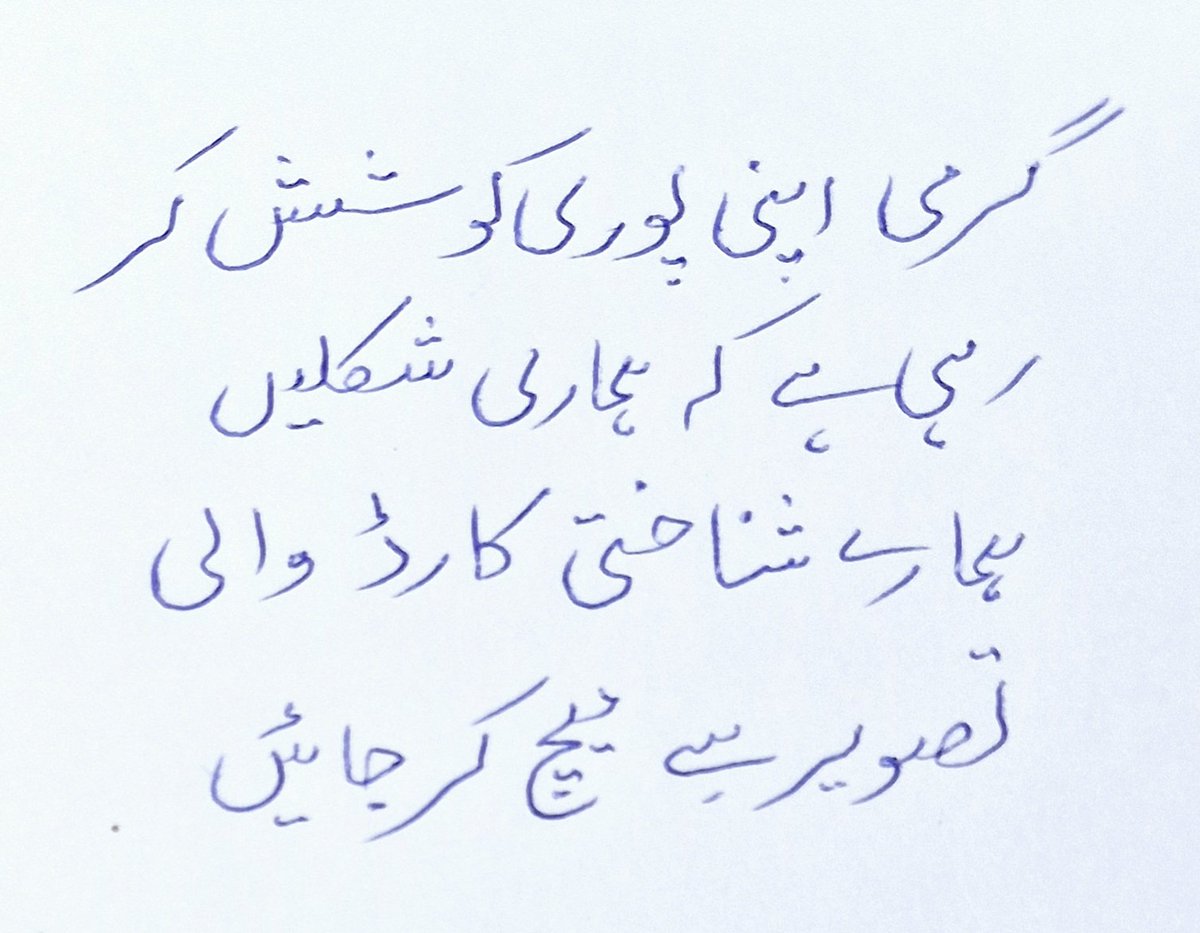 گرمی اپنی پوری کوشش کر
رہی ہے کہ ہماری شکلیں
ہمارے شناختی کارڈ والی
تصویر سے میچ کر جائیں